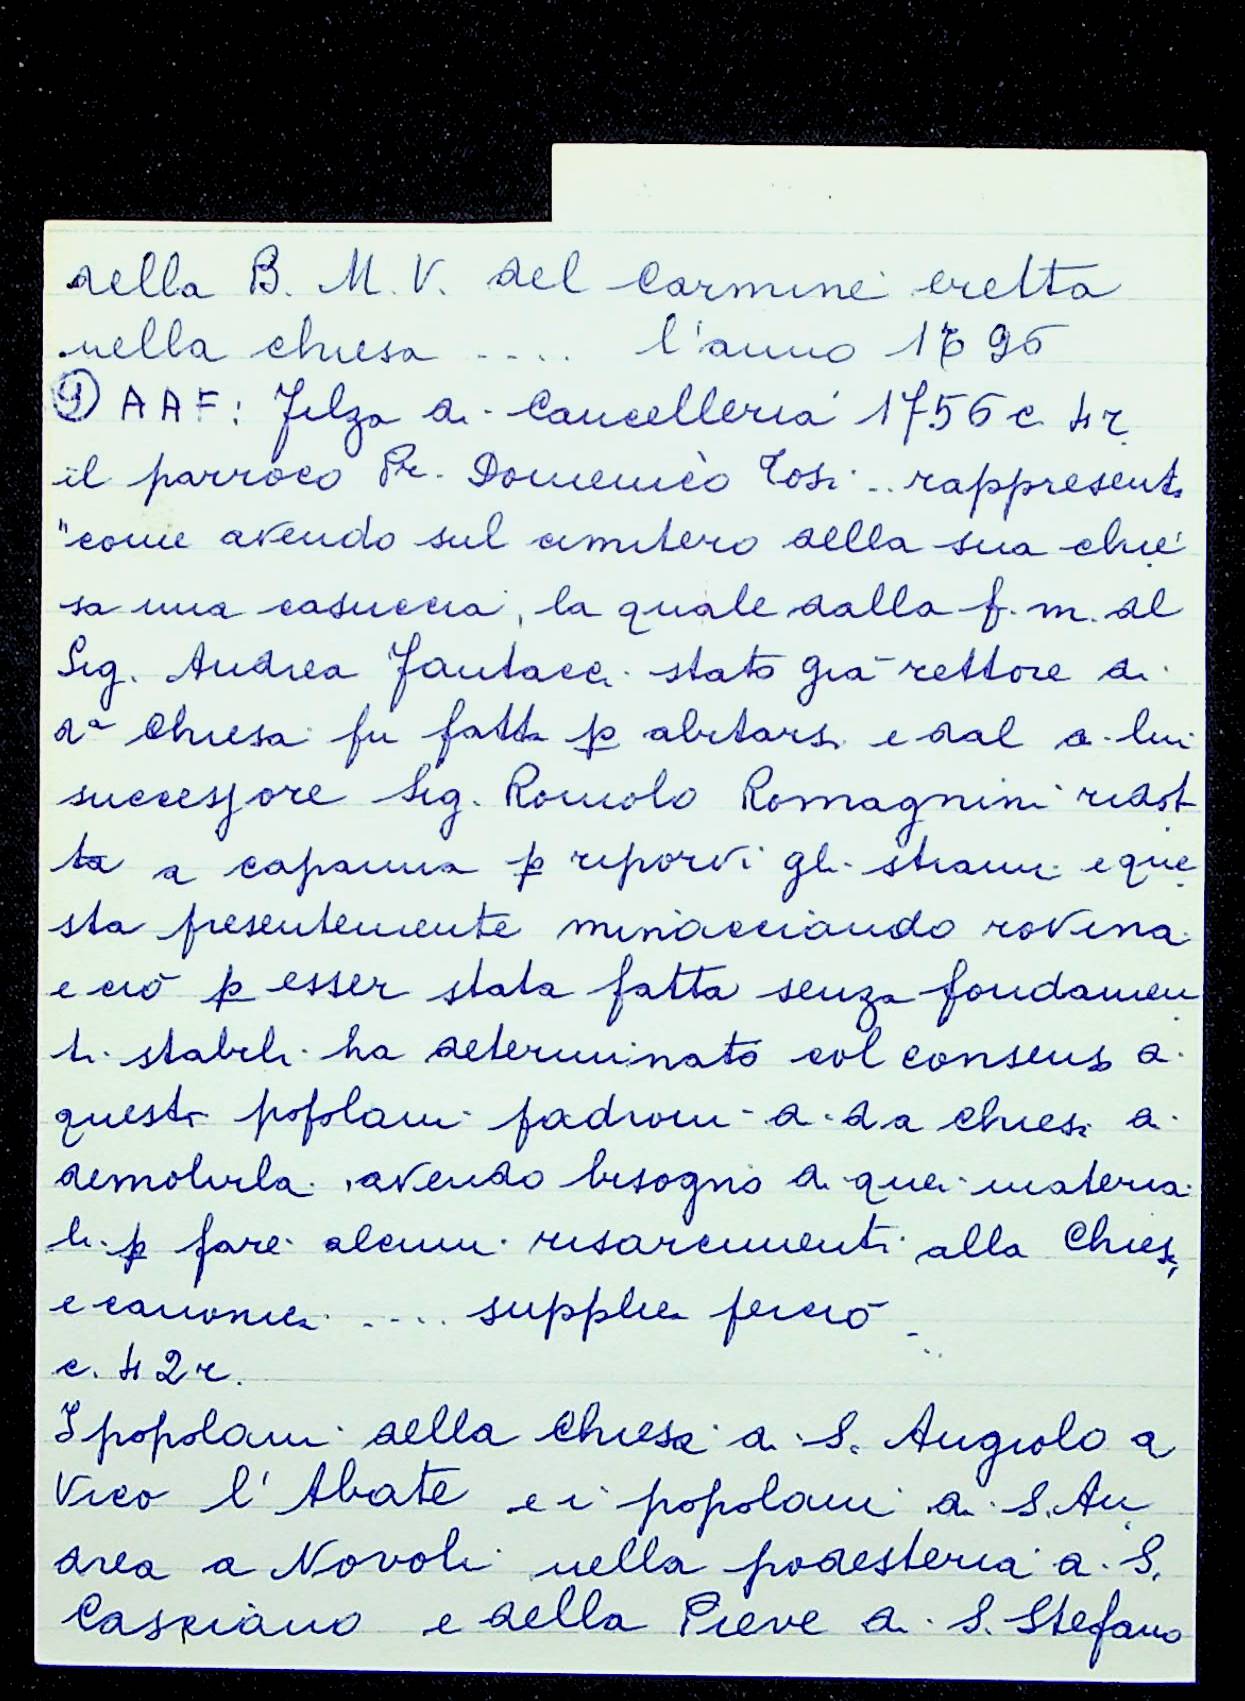 della B. M. V. del Carmine eretta
nella chiesa .... l'anno 1695
9) AAF: Filza di Cancelleria 1756 c. 4r.
il parroco Pr. Domenico Tosi .. rappresenta
"come avendo sul cimitero della sua chie
sa una casuccia, la quale dalla f. m. del
Sig. Andrea Fantacci stato già rettore di
da Chiesa fu fatta p abitarsi e dal di lui
successore Sig. Romolo Romagnini ridot
ta a capanna p riporvi gli strami e que
sta presentemente minacciando rovina
e ciò p esser stata fatta senza fondamen
ti stabili ha determinato col consenso di
questi popolani padroni di da Chiesa di
demolirla, avendo bisogno di quei materia
li p fare alcuni risarcimenti alla Chiesa,
e canonica .... supplica perciò ...
c. 42r.
I popolani della Chiesa di S. Angiolo a
Vico l'Abate e i popolani di S. An
drea a Novoli nella podesteria di S.
Casciano e della Pieve di S. Stefano